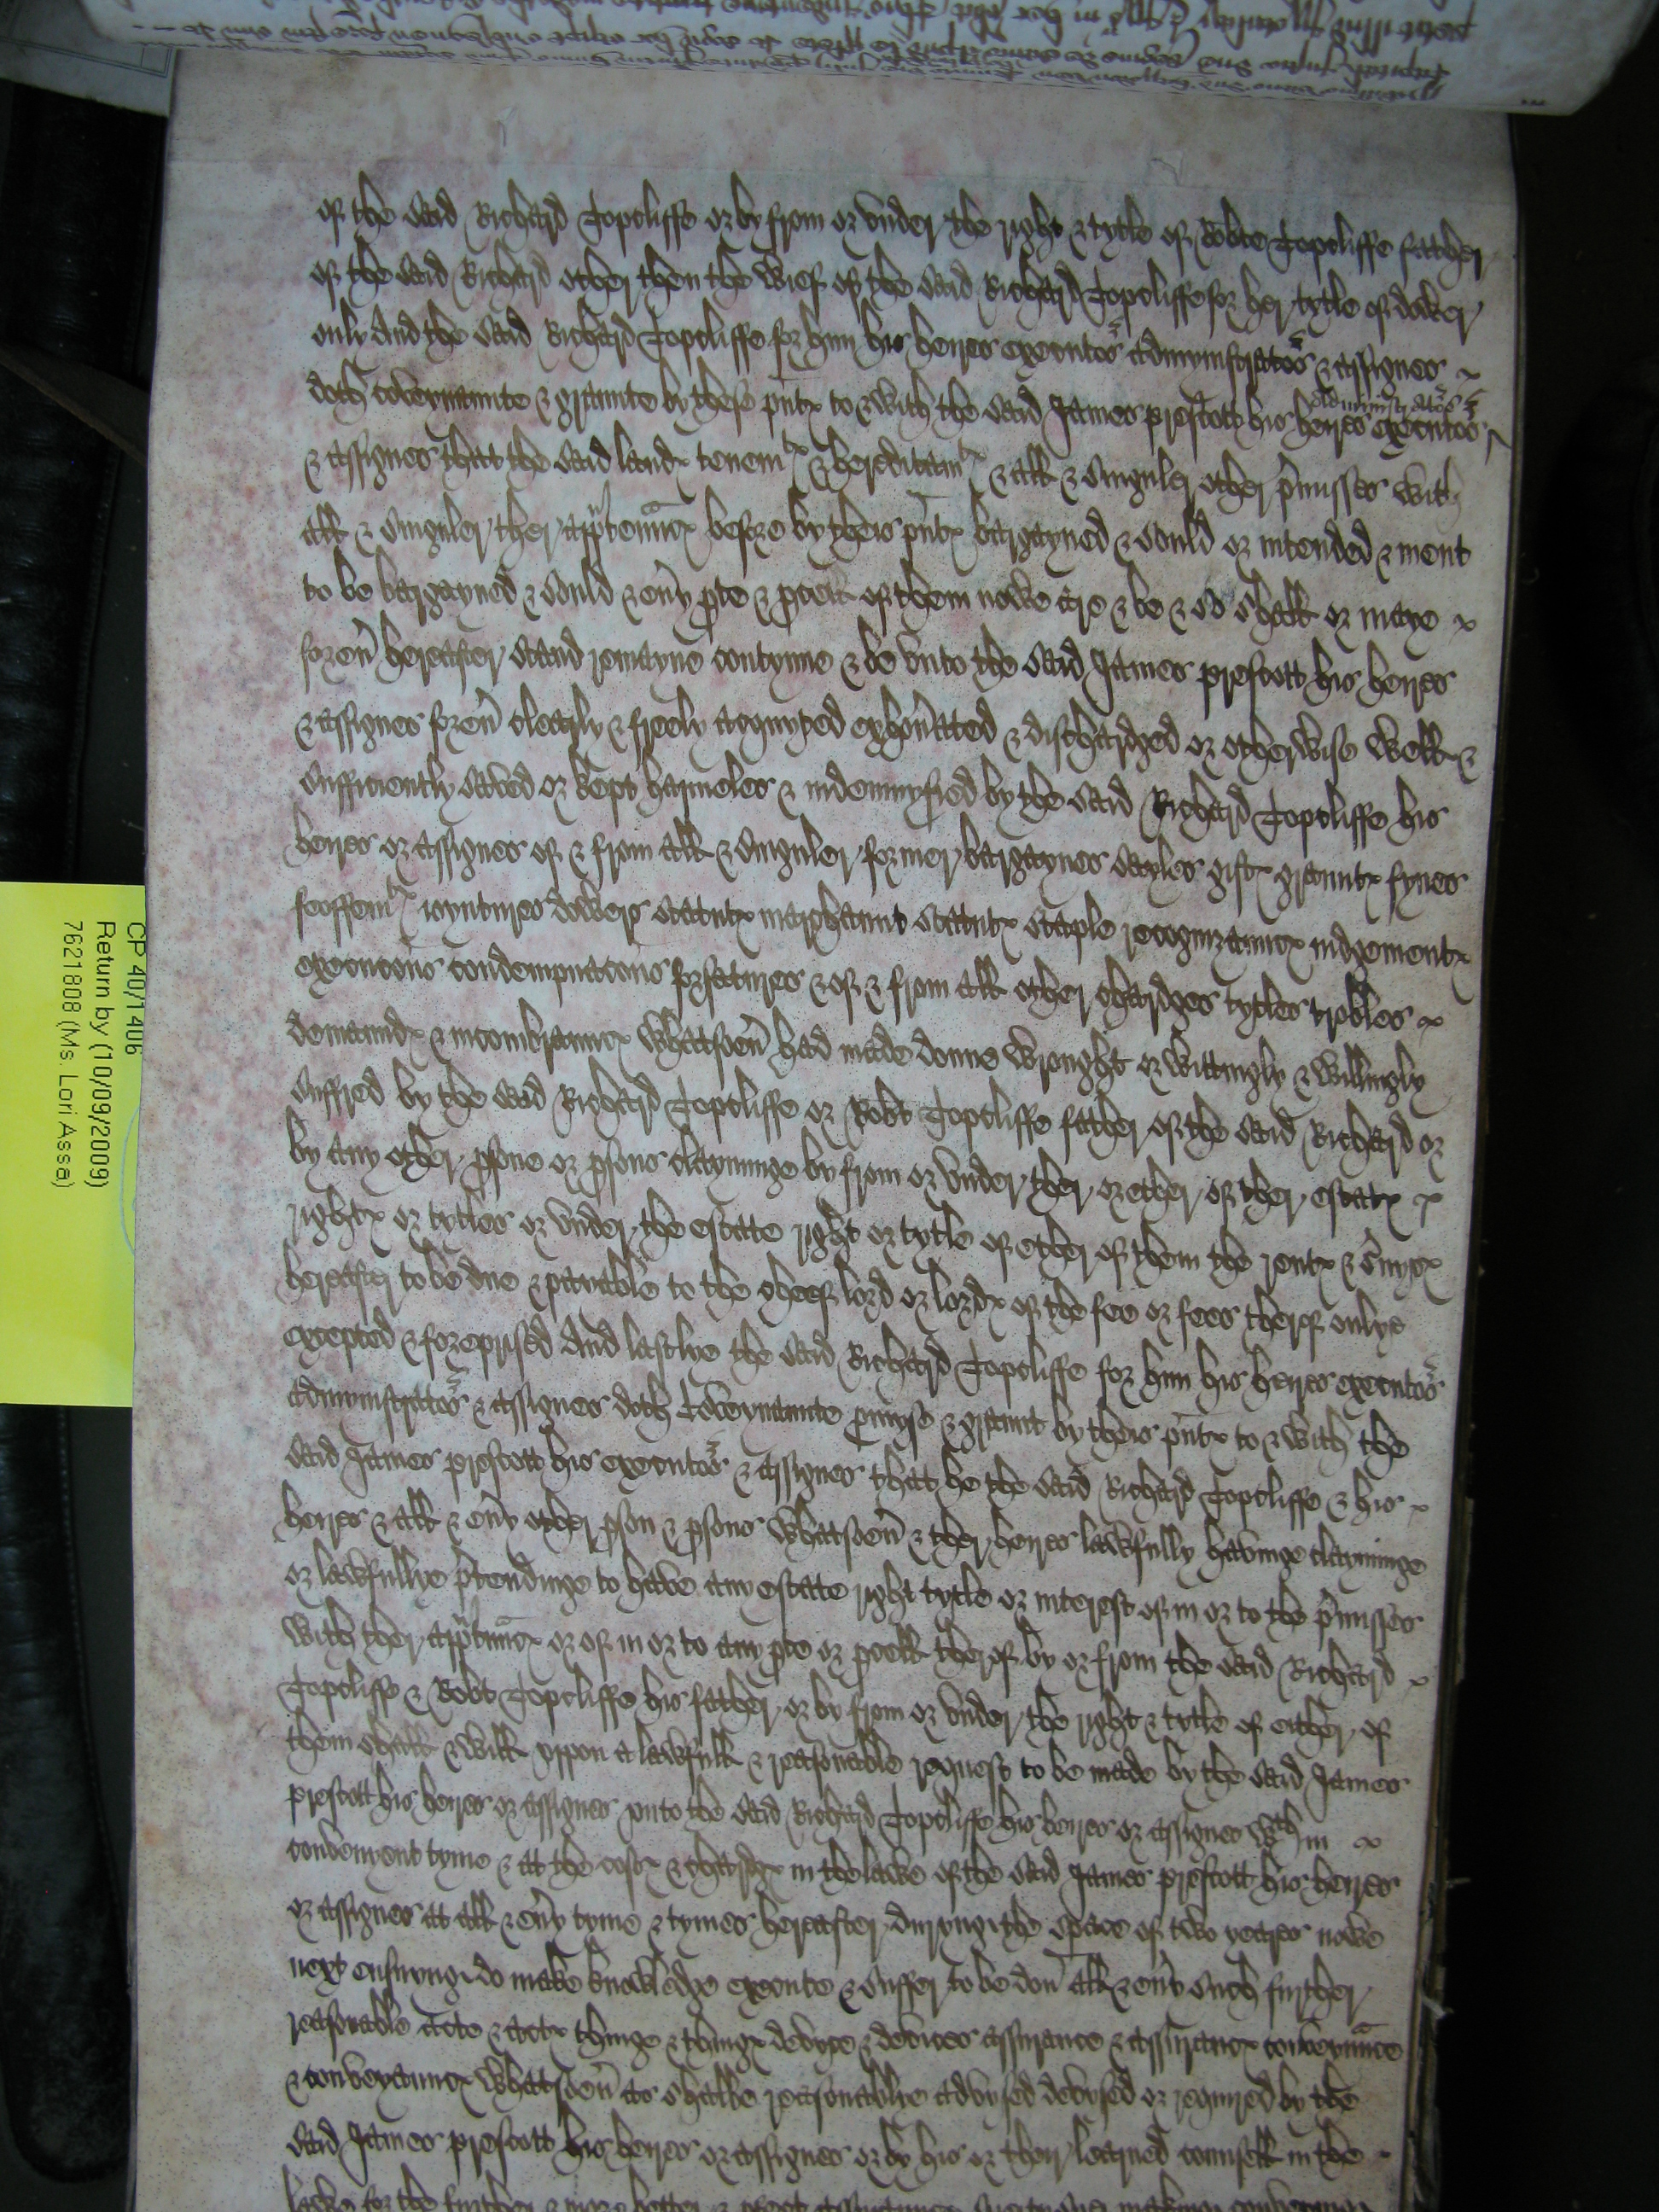 of the said Richard Topcliffe or by from or under the right & tytle of Robte Topcliffe father
of the said Richard other then the wief of the said Richard Topcliffe for her tytle of dower
only And the said Richard Topcliffe for hym his heires executos admynystratos & assignes
doth covenunte & graunte by these pntx to & with the said James prescott his heires executos administratos
& assignes that the said landx tenemtx & hereditamtx & all & singuler other pmisses with
all & singuler ther apptenncx before by theis pntx bargayned & sould or intended & ment
to be bargayned & sould & evy pte & pcell of them nowe are & be & so shall or maye
for ev hereafter stand remayne contynue & be unto the said James prescott his heires
& assignes for ev clearly & freely acquyted exhonated & dischardged or otherwise well &
sufficiently saved or kept harmeles & indempnyfied by the said Richard Topcliffe his
heires or assignes of & from all & singuler former bargaynes sayles giftx grauntx fynes
feoffemtx ioyntures dowers statutx marchaunt statutx staple recognizauncx iudgementx
execucons condempnacons forfatures & of & from all other chardges tytles trobles
demaundx & incombrauncx whatsoev had made donne wrought or wittingly & willingly
suffred by the said Richard Topcliffe or Robt Topcliffe father of the said Richard or
by any other psone or psons clayminge by from or under ther or ether of ther estatx
rightx or tytles or under the estate right or tytle of ether of them the rentx & svicx
hereafter to be due & paiable to the cheef lord or lordx of the fee or fees therof onlye
excepted & foreprised And lastlye the said Richard Topcliffe for hym his heires executos
admynystratos & assignes doth covenunte pmyse & graunt by theis pntx to & with the
said James prescott his executos & assignes that he the said Richard Topcliffe & his
heires & all & evy other pson & psons whatsoev & ther heires lawfully havinge clayminge
or lawfullye ptendinge to have any estate right tytle or interest of in or to the pmisses
with ther apptenncx or of in or to any pte or pcell therof by or from the said Richard
Topcliffe & Robt Topcliffe his father or by from or under the right & tytle of ether of
them shall & will uppon a lawfull & reasonable request to be made by the said James
prescott his heires or assignes unto the said Richard Topcliffe his heires or assignes wthin
convenyent tyme & att the costx & chardgx in the lawe of the said James prescott his heires
or assignes at all & evy tyme & tymes hereafter duryng the space of two yeares nowe
next ensuyng do make knowledge execute & suffer to be don all & evy such further
reasonable acte & actx thinge & thingx devyce & devices assurance & assurancx conveyance
& conveyauncx whatsoev as shalbe reasonablye advysed devysed or required by the
said James prescott his heires or assignes or by his or ther learned counsell in the
lawe for the further & more better &
CP 40/1406
Return by (10/09/2009)
7621808 (Ms. Lori Assa)